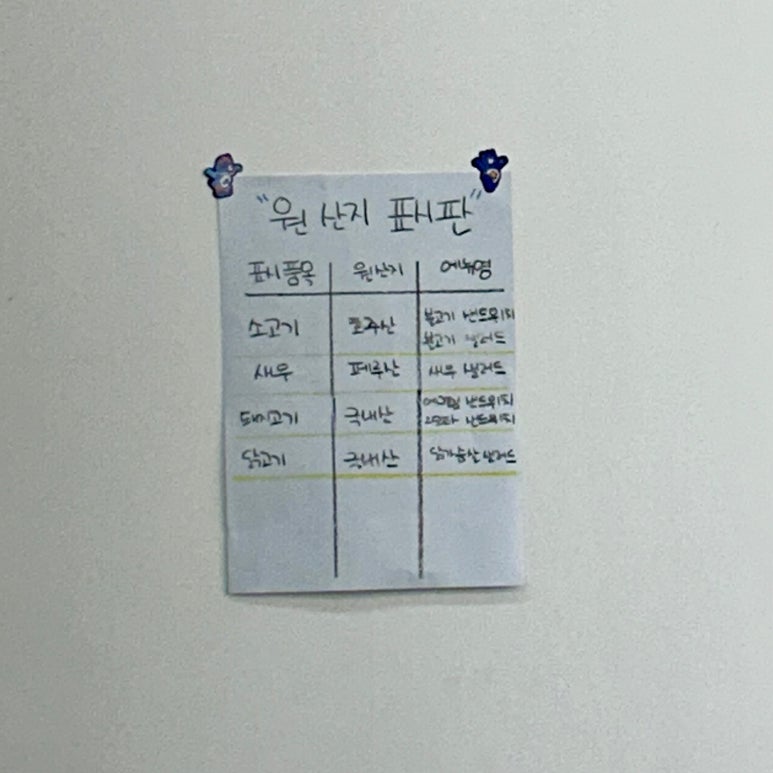 "원산지 표시판"
표시품목 원산지 메뉴명
소고기 호주산 불고기 샌드위치
불고기 샐러드
새우 페루산 새우 샐러드
돼지고기 국내산 샌드위치
샌드위치
닭고기 국내산 닭가슴살 샐러드